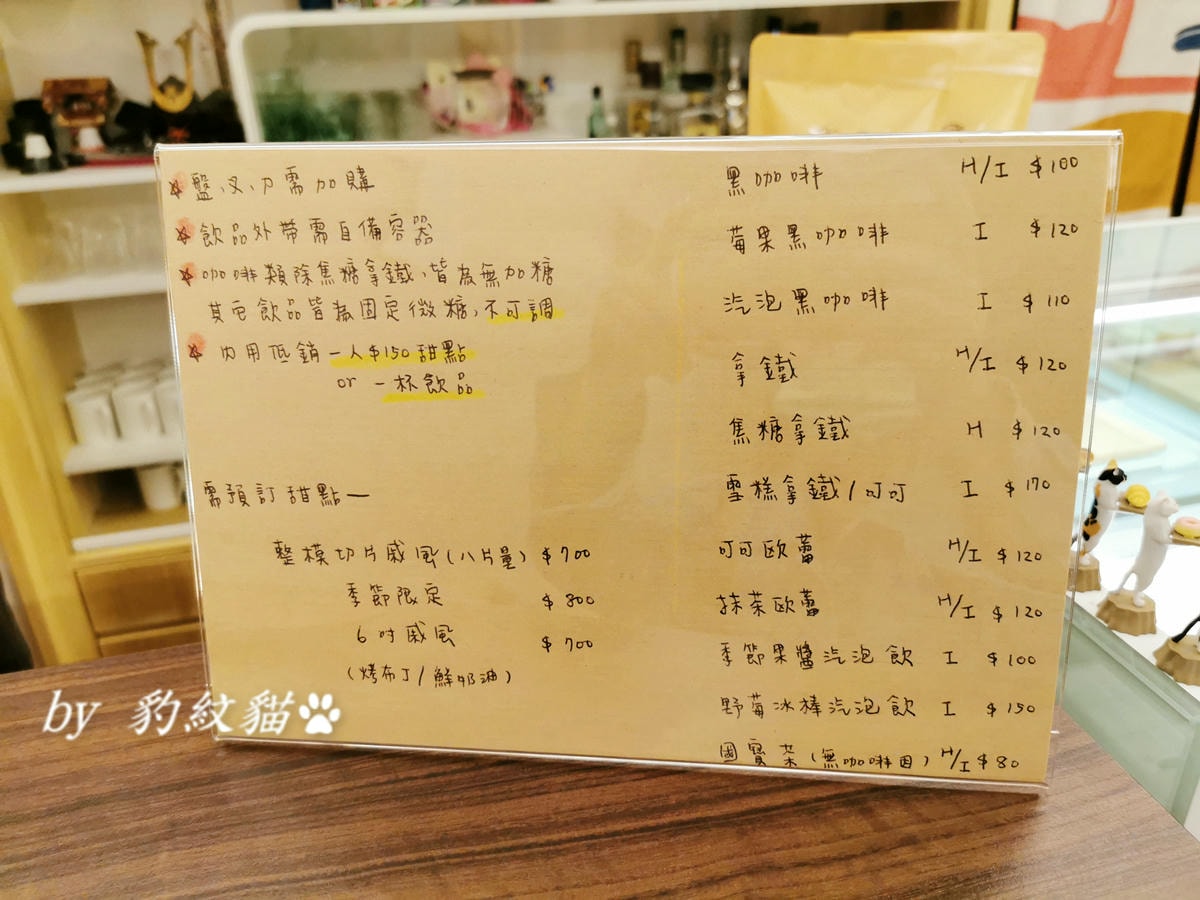 盤、叉、刀需加購
飲品外帶需自備容器
咖啡類除焦糖拿鐵、皆為無加糖
其它飲品皆為固定微糖、不可調
內用低銷一人$150甜點
or 一杯飲品
需預訂甜點一
整模切片戚風(八片量) $700
季節限定 $800
6吋戚風 $700
(烤布丁/鮮奶油)
黑咖啡 H/I $100
莓果黑咖啡 I $120
汽泡黑咖啡 I $110
拿鐵 H/I $120
焦糖拿鐵 H $120
雪糕拿鐵/可可 I $170
可可歐蕾 H/I $120
抹茶歐蕾 H/I $120
季節果醬汽泡飲 I $100
野莓冰棒汽泡飲 I $150
國寶茶(無咖啡因) H/I $80
by 豹紋貓